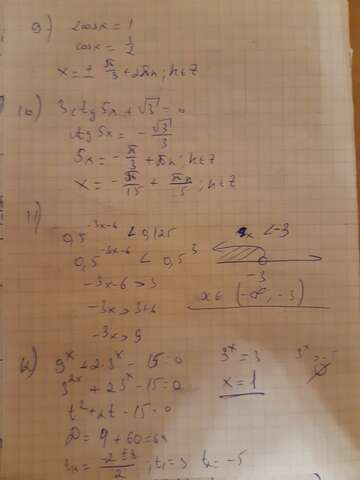 9) 2cosx = 1
cosx = 1/2
x = ± π/3 + 2πn; n∈Z
10) 3ctg5x + √3 = 0
ctg5x = - √3/3
5x = - π/3 + πn; n∈Z
x = - π/15 + πn/5; n∈Z
11)
0,5^(-3x-6) < 0,125
0,5^(-3x-6) < 0,5^3
-3x-6 > 3
-3x > 3+6
-3x > 9
x < -3
-3
x∈ (-∞; -3)
12) 9^x + 2·3^x - 15 = 0
3^(2x) + 2·3^x - 15 = 0
t^2 + 2t - 15 = 0
; t1 = 3 t2 = -5
3^x = 3 3^x = -5
x = 1 ∅